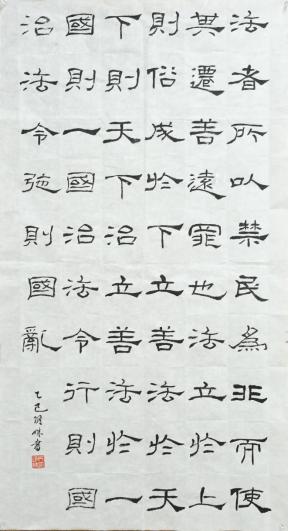 法者所以禁民為非而使
其遷善遠罪也法立於上
則俗成於下立善法於天
下則天下治立善法於一
國則一國治法令行則國
治法令弛則國亂
乙巳胡書